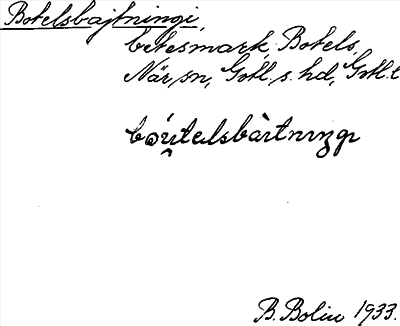 Botelsbajtningi,
betesmark, Botels,
När sn, Gotl. s. hd, Gotl. l
B. Bolin 1933.